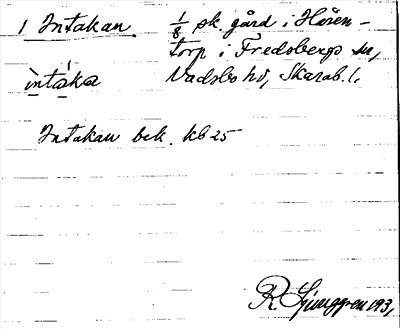 1 Intakan. 1/8 sk. gård i Hören-
torp i Fredsbergs sn,
ìntáka Vadsbo hd, Skarab. l.
Intakan bek. kb 25
R Ljunggren 193,